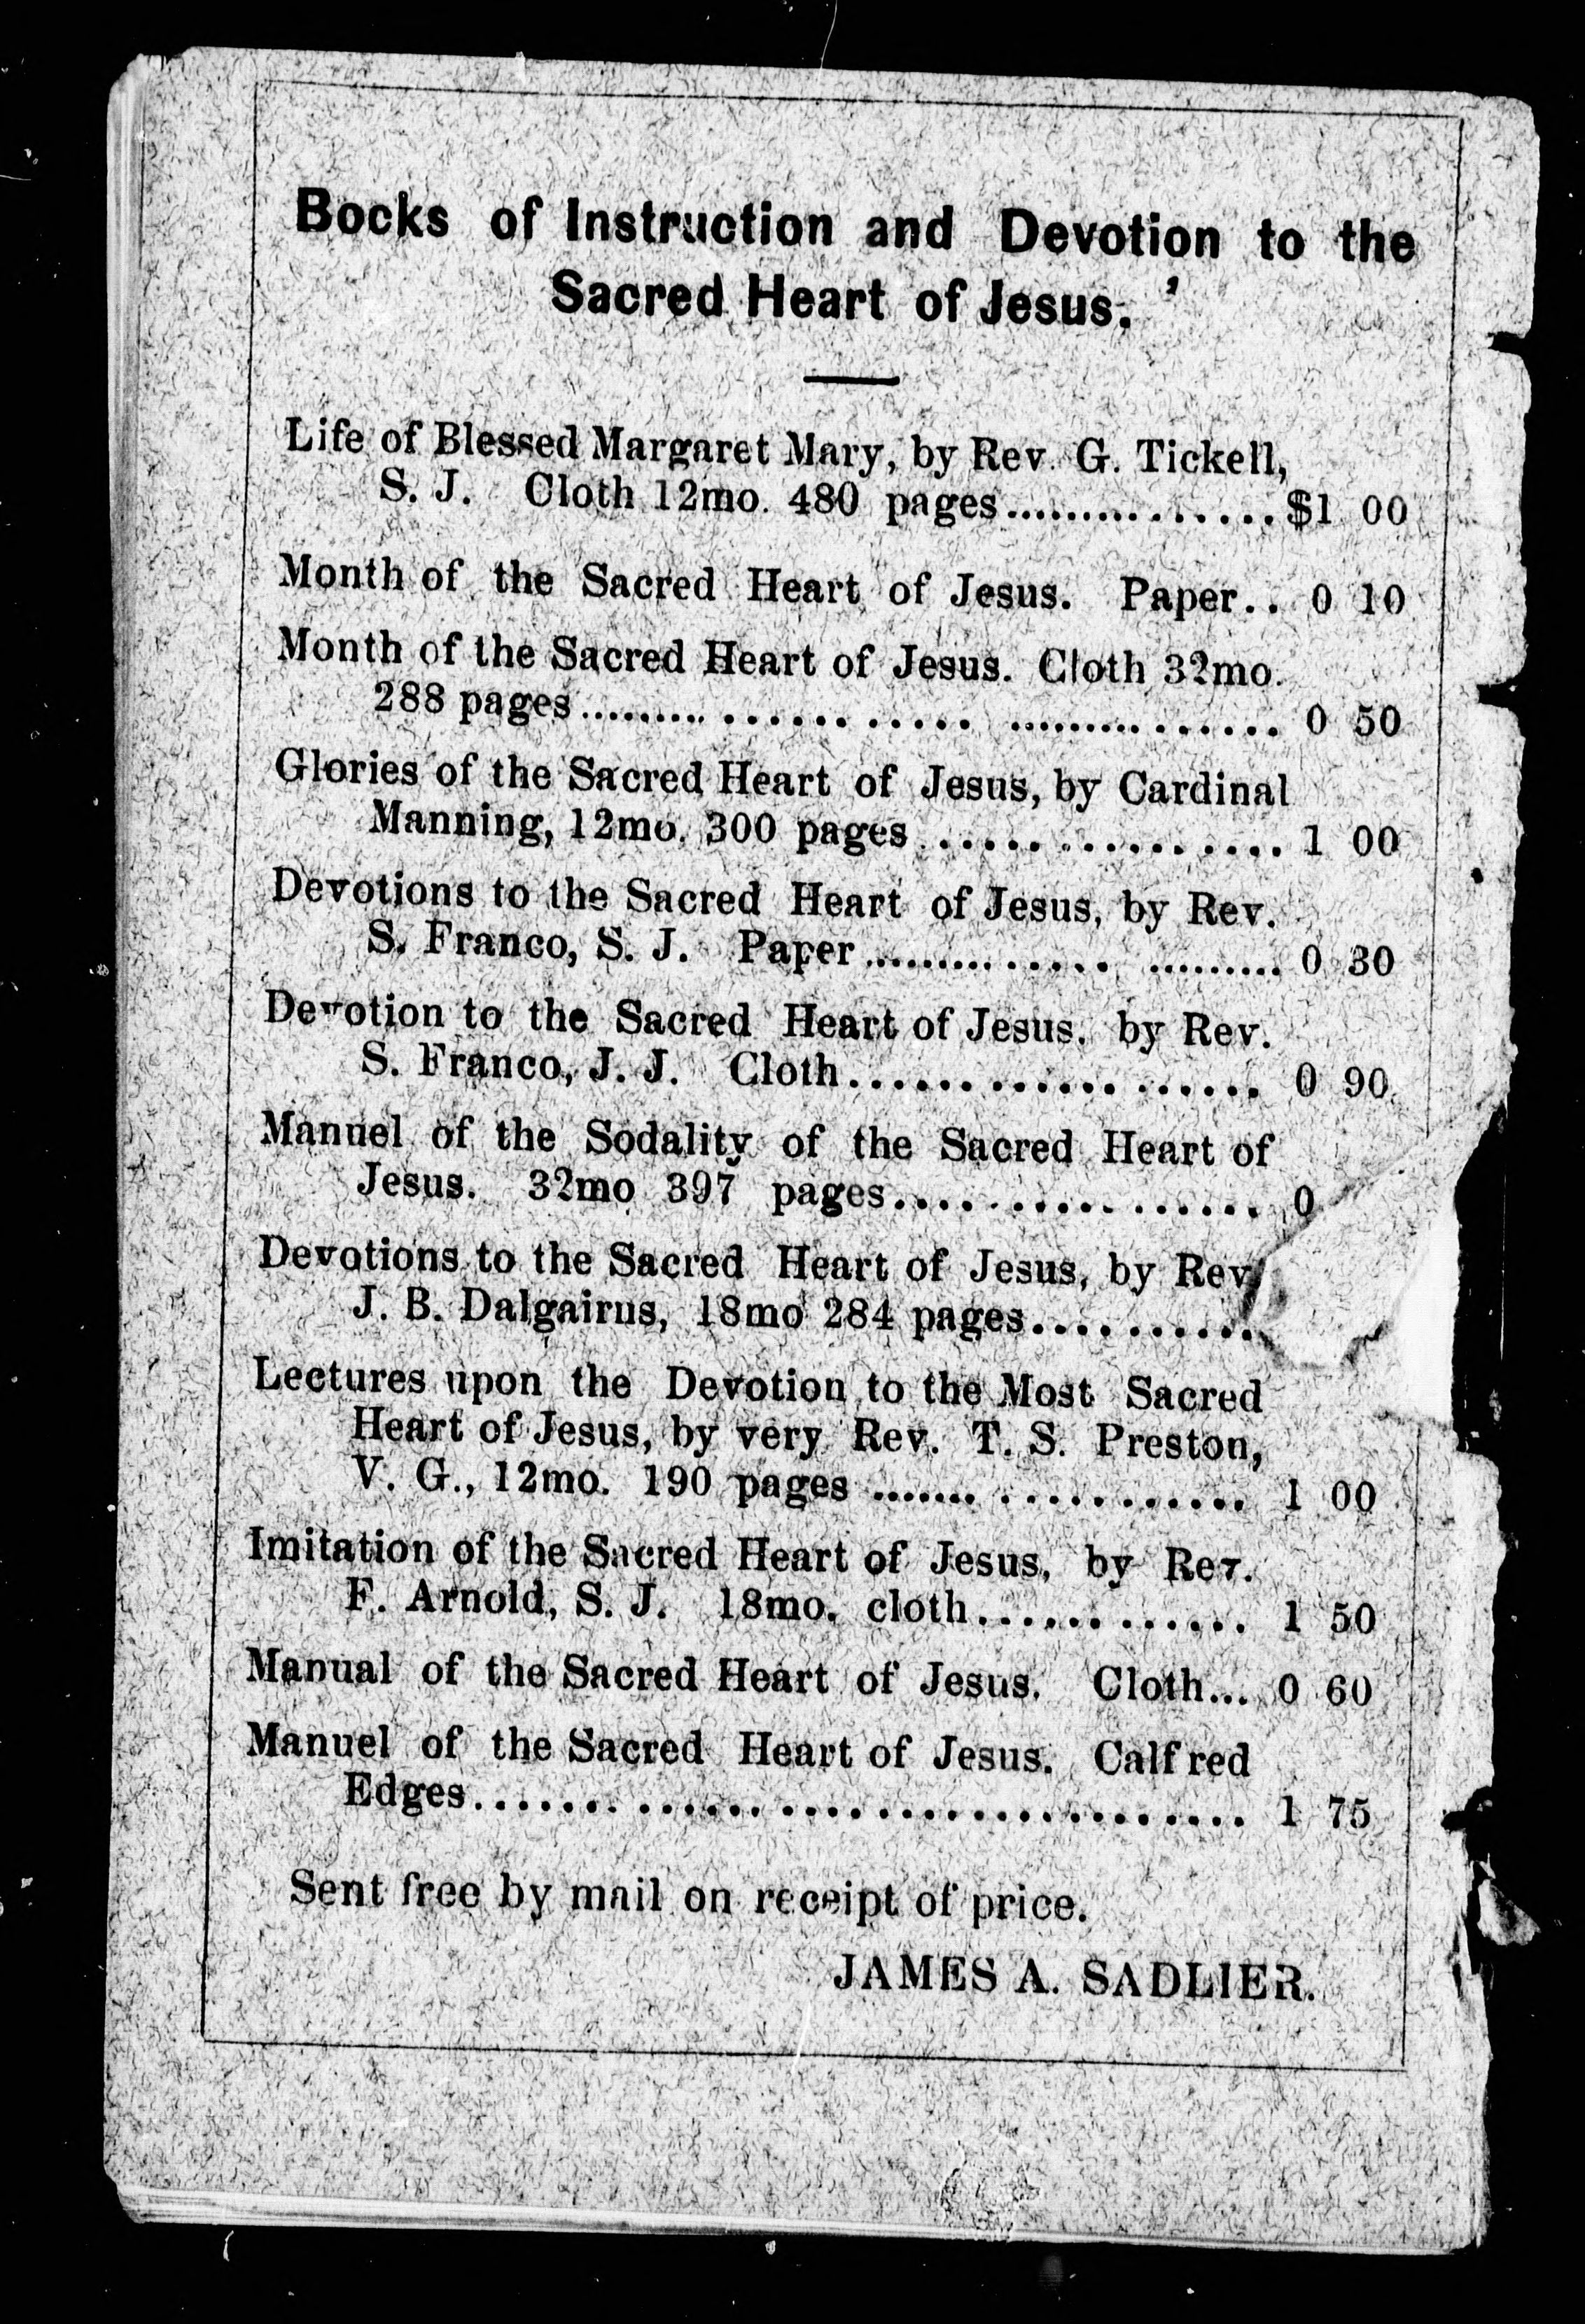 Books of Instruction and Devotion to the
Sacred Heart of Jesus.
Life of Blessed Margaret Mary, by Rev. G. Tickell,
S. J. Cloth 12mo. 480 pages.................$1 00
Month of the Sacred Heart of Jesus. Paper.. 0 10
Month of the Sacred Heart of Jesus. Cloth 32mo.
288 pages.................................... 0 50
Glories of the Sacred Heart of Jesus, by Cardinal
Manning, 12mo. 300 pages................ 1 00
Devotions to the Sacred Heart of Jesus, by Rev.
S. Franco, S. J. Paper....................... 0 30
Devotion to the Sacred Heart of Jesus, by Rev.
S. Franco, J. J. Cloth.................. 0 90
Manuel of the Sodality of the Sacred Heart of
Jesus. 32mo 397 pages................ 0
Devotions to the Sacred Heart of Jesus, by Rev
J. B. Dalgairus, 18mo 284 pages..........
Lectures upon the Devotion to the Most Sacred
Heart of Jesus, by very Rev. T. S. Preston,
V. G., 12mo. 190 pages .................. 1 00
Imitation of the Sacred Heart of Jesus, by Rev.
F. Arnold, S. J. 18mo. cloth............ 1 50
Manual of the Sacred Heart of Jesus. Cloth... 0 60
Manuel of the Sacred Heart of Jesus. Calf red
Edges.................................. 1 75
Sent free by mail on receipt of price.
JAMES A. SADLIER.